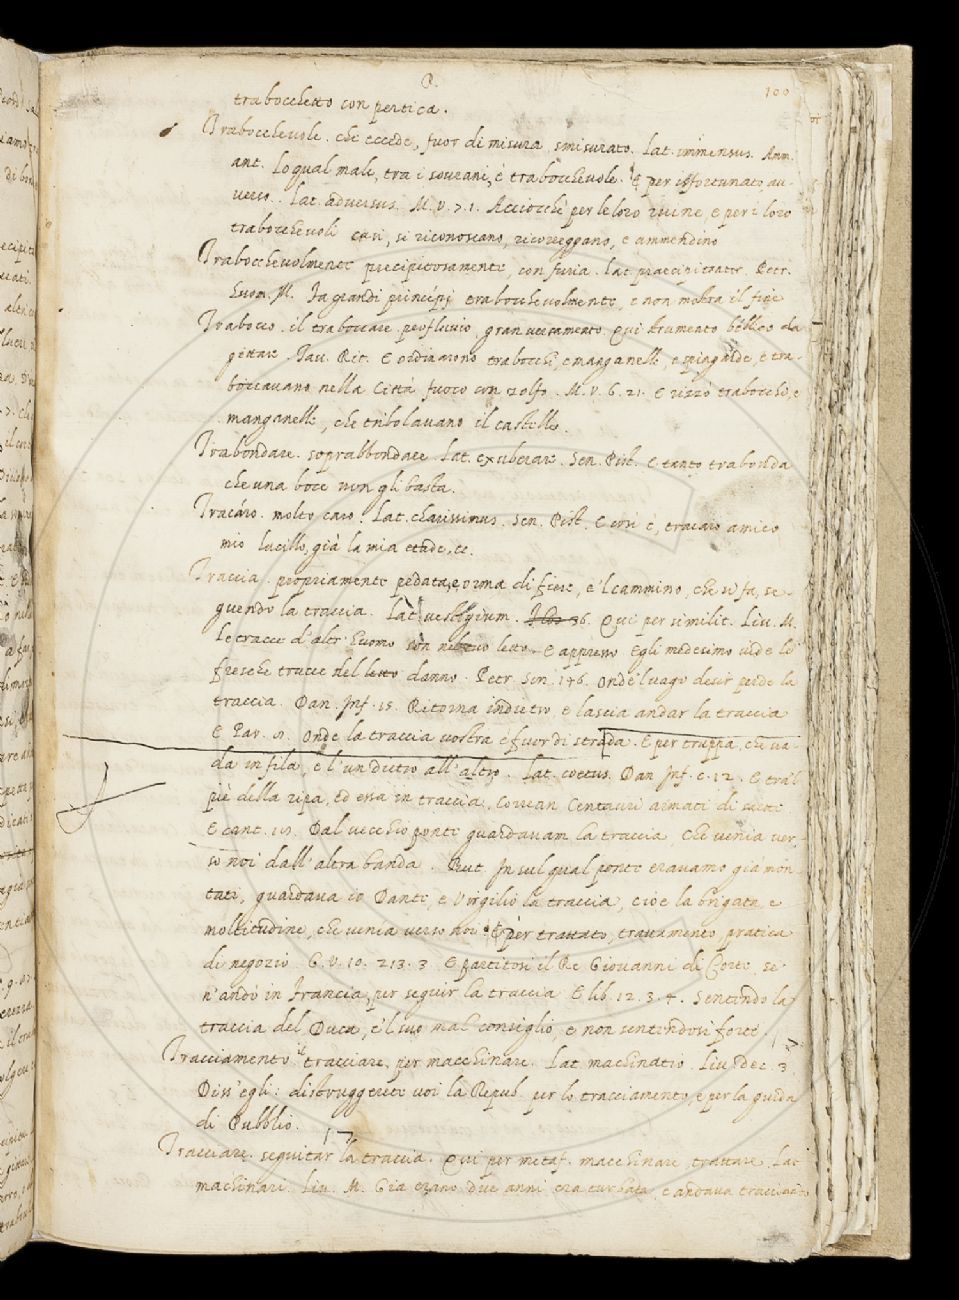 100
trabocchetto con pertica.
Trabocchevole. che eccede, fuor di misura, smisurato. Lat. immensus. Amm.
ant. Lo qual male, tra i sovrani, è trabocchevole. E per isfortunato, au-
verso. Lat. adversus. M.V. 7.1. Acciocchè per le loro ruine, e per i loro
trabocchevoli casi, si riconoscano, ricoreggano, e ammendino
Trabocchevolmente precipitosamente, con furia. Lat. praecipitanter. Petr.
huom. M. Ja grandi principj trabocchevolmente, e non mostra il fine
Trabocco. il traboccare. profluvio, gran versamento. Qui strumento bellico da
gittare. Tav. Rit. E ordinarono trabocchi, e manganelle, e spingarde, e tra-
boccavano nella Città fuoco con zolfo. M.V. 6.21. E rizzò trabocchi, e
manganelle, che tribolavano il castello.
Trabondare. soprabbondare. Lat. exuberare. Sen. Pist. E tanto trabonda
che una boce non gli basta.
Tracáro. molto caro. Lat. charissimus. Sen. Pist. E così è, tracaro amico
mio Lucillo, già la mia etade, ec.
Traccia. propriamente pedata, e orma di fiere, e 'l cammino, che si fa, se-
guendo la traccia. Lat. vestigium. 36. Qui per similit. Liv. M.
Le tracce d'altr' huomo son nel tuo letto. E appresso Egli medesimo vide le
fresche tracce nel letto danno. Petr. Son. 146. Onde 'l vago desir perde la
traccia. Dan. Inf. 15. Ritorna indietro, e lascia andar la traccia
E Par. 8. Onde la traccia vostra è fuor di strada. E per truppa, che va-
da in fila, e l'un dietro all'altro. Lat. coetus. Dan. Inf. c. 12. E tra 'l
piè della ripa, ed essa in traccia, Correan Centauri armati di saette
E cant. 18. Dal vecchio ponte guardavam la traccia, Che venia ver-
so noi dall'altra banda. But. In sul qual ponte eravamo già mon-
tati, guardava io Dante, e Virgilio la traccia, cioè la brigata, e
moltitudine, che venia verso noi. E per trattato, trattamento pratica
di negozio G.V. 10. 213. 3 E partitosi il Re Giovanni di Corte, se
n'andò in Francia, per seguir la traccia. E lib. 12. 3. 4. Sentendo la
traccia del Duca, e 'l suo mal consiglio, e non sentendosi forte
Tracciamento il tracciare, per macchinare. Lat. machinatio. Liv. dec. 3.
Diss'egli: distruggerete voi la Repub. per lo tracciamento, e per la guida
di Pubblio.
Tracciare. seguitar la traccia. Qui per metaf. macchinare, trattare. Lat.
machinari. Liv. M. Gia erano due anni era turbata, e andava tracciando